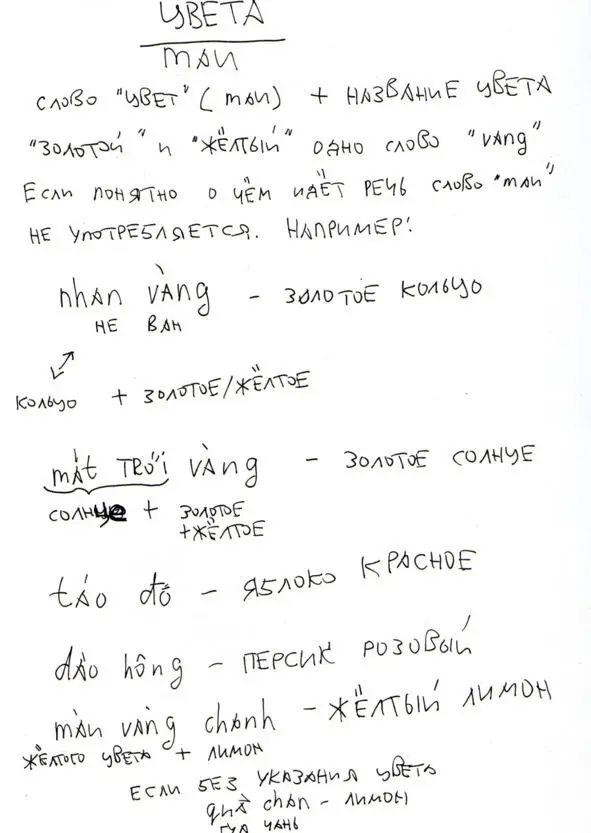 ЦВЕТА
màu
СЛОВО "ЦВЕТ" (màu) + НАЗВАНИЕ ЦВЕТА
"ЗОЛОТОЙ" И "ЖЁЛТЫЙ" ОДНО СЛОВО "vàng"
ЕСЛИ ПОНЯТНО О ЧЁМ ИДЁТ РЕЧЬ СЛОВО "màu"
НЕ УПОТРЕБЛЯЕТСЯ. НАПРИМЕР:
nhan vàng - ЗОЛОТОЕ КОЛЬЦО
НЕ ВАН
КОЛЬЦО + ЗОЛОТОЕ/ЖЁЛТОЕ
mát trời vàng - ЗОЛОТОЕ СОЛНЦЕ
СОЛНЦЕ + ЗОЛОТОЕ
+ЖЁЛТОЕ
táo đỏ - ЯБЛОКО КРАСНОЕ
đào hông - ПЕРСИК РОЗОВЫЙ
màu vàng chanh - ЖЁЛТЫЙ ЛИМОН
ЖЁЛТОГО ЦВЕТА + ЛИМОН
ЕСЛИ БЕЗ УКАЗАНИЯ ЦВЕТА
quả chan - ЛИМОН